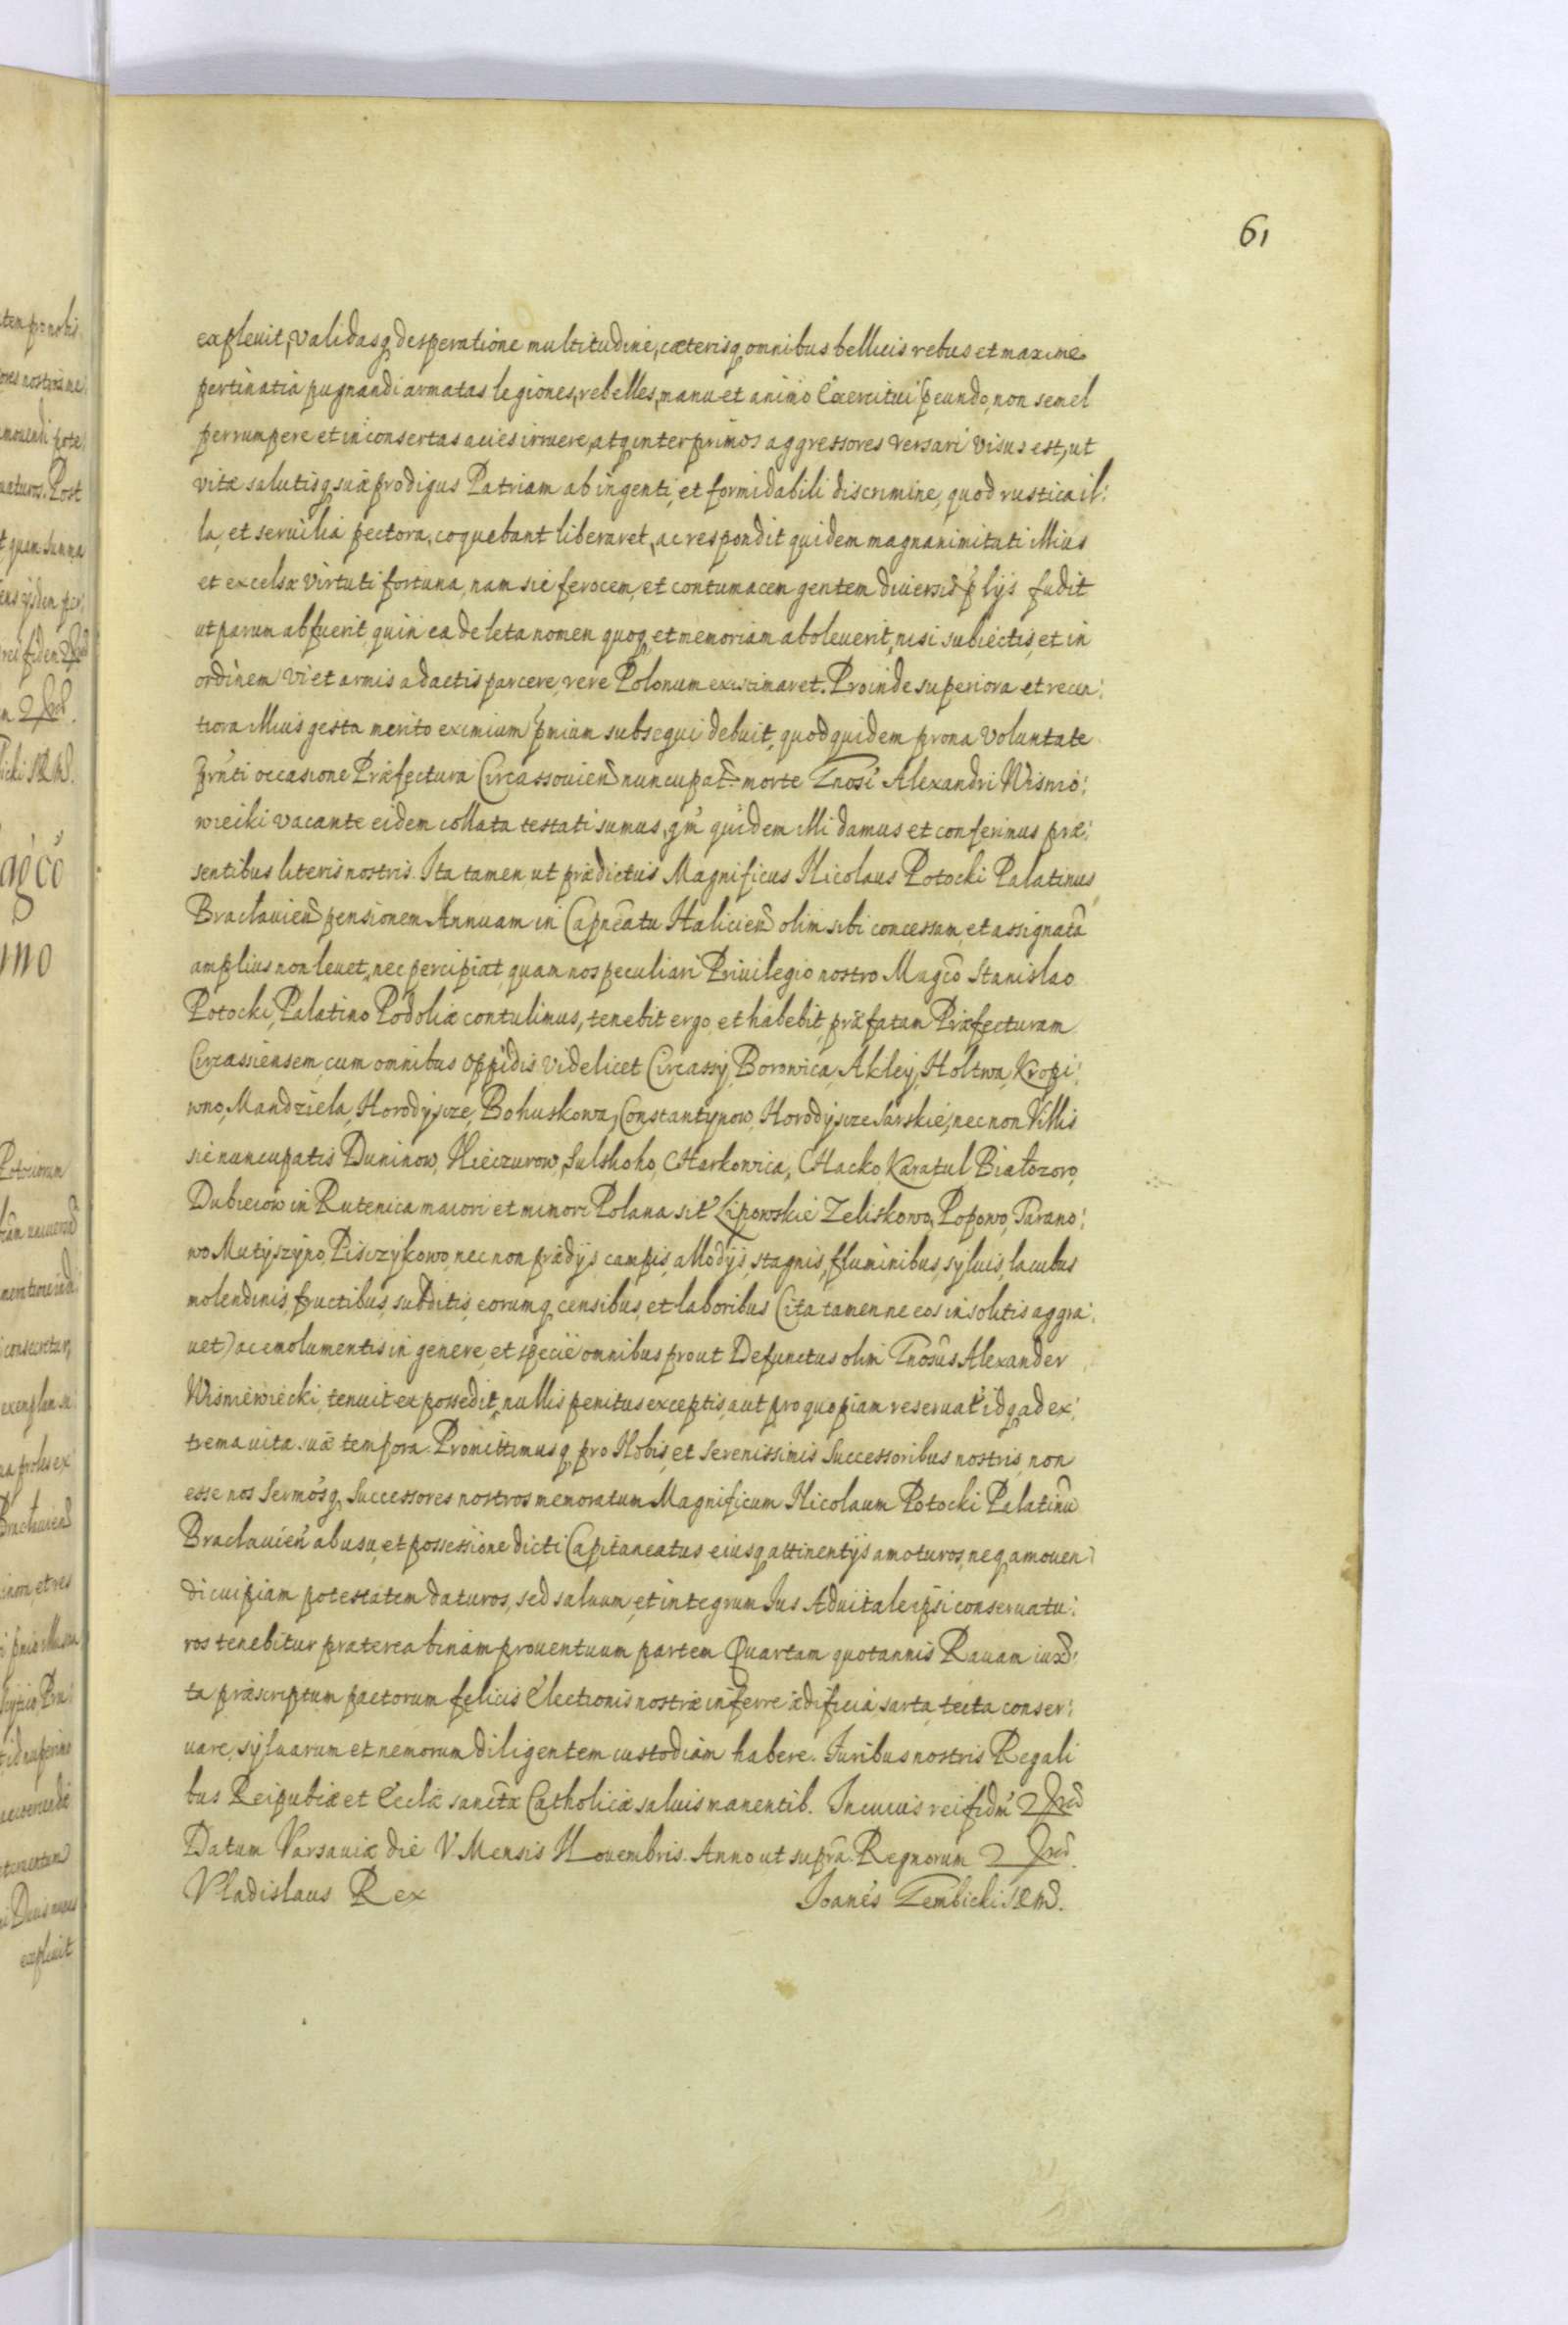 61
expleuit, validasq desperatione multitudine, cæterisq omnibus bellicis rebus et maxime
pertinatia pugnandi armatas legiones, rebelles, manu et animo Exercitui p̃eundo, non semel
perrumpere et in consertas acies irruere, atq inter primos aggressores versari visus est, ut
vitæ salutisq suæ prodigus Patriam ab ingenti, et formidabili discrimine, quod rustica il:
la, et seruilia pectora, coquebant liberaret, ac respondit quidem magnanimitati illius
et excelsæ virtuti fortuna, nam sic ferocem, et contumacem gentem diuersis p̃lijs fudit
ut parum abfuerit, quin ea deleta nomen quoq et memoriam aboleuerit, nisi subiectis, et in
ordinem vi et armis adactis parcere, vere Polonum existimaret. Proinde superiora et recen:
tiora illius gesta merito eximium p̃mium subsequi debuit, quod quidem prona voluntate
p̃rnti occasione Præfectura Circassouien nuncupat morte Gnosi Alexandri Wisnio:
wieiki vacante eidem collata testati sumus, qm̃ quidem illi damus et conferimus præ:
sentibus literis nostris. Ita tamen ut prædictus Magnificus Nicolaus Potocki Palatinus
Bracłauien pensionem Annuam in Capneatu Halicien olim sibi concessam, et assignatã
amplius non leuet, nec percipiat, quam nos peculiari Priuilegio nostro Magco Stanislao
Potocki, Palatino Podoliæ contulimus, tenebit ergo, et habebit, præfatam Præfecturam
Circassiensem, cum omnibus oppidis videlicet Circassy, Borowica, Akley, Holtwa, Kropi:
wno, Mandziela, Horodyszcze, Bohuskowa, Constantynow, Horodyszcze Sarskie, nec non Villis
sic nuncupatis Duninow, Nieczurow, Sulshoho, CHarkowica, CHacko, Karatul Białozoro,
Dubieiow in Rutenica maiori et minori Polana sit Lipowskie Zeliskowo, Popowo, Tarano:
wo Mutyszyno, Pisczykowo, nec non prædijs campis, allodijs, stagnis, fluminibus, syluis, lacubus
molendinis, fructibus, subditis, eorumq censibus, et laboribus (ita tamen ne eos insolitis aggra:
uet) ac emolumentis in genere, et specie omnibus prout Defunctus olim Gnosus Alexander
Wisniewiecki, tenuit et possedit, nullis penitus exceptis, aut pro quopiam reseruat idq ad ex:
trema vitæ suæ tempora. Promittimusq pro Nobis, et Serenissimis Successoribus nostris, non
esse nos Sermosq Successores nostros memoratum Magnificum Nicolaum Potocki Palatinũ
Bracłauien ab usu, et possessione dicti Capitaneatus eiusq attinentijs amoturos, neq amouen
di cuipiam potestatem daturos, sed saluum, et integrum Ius Aduitale ipsi conseruatu:
ros tenebitur præterea binam prouentuum partem Quartam quotannis Rauam iux:
ta præscriptum pactorum felicis Electionis nostræ inferre ædificia sarta tecta conser:
uare, syluarum et nemorum diligentem custodiam habere. Iuribus nostris Regali
bus Reipubcæ et Ecclæ sanctæ Catholicæ saluis manentib. In cuius rei fidm̃
Datum Varsauiæ die V. Mensis Nouembris. Anno ut supra. Regnorum
Vladislaus Rex Joanes Gembicki SRM.